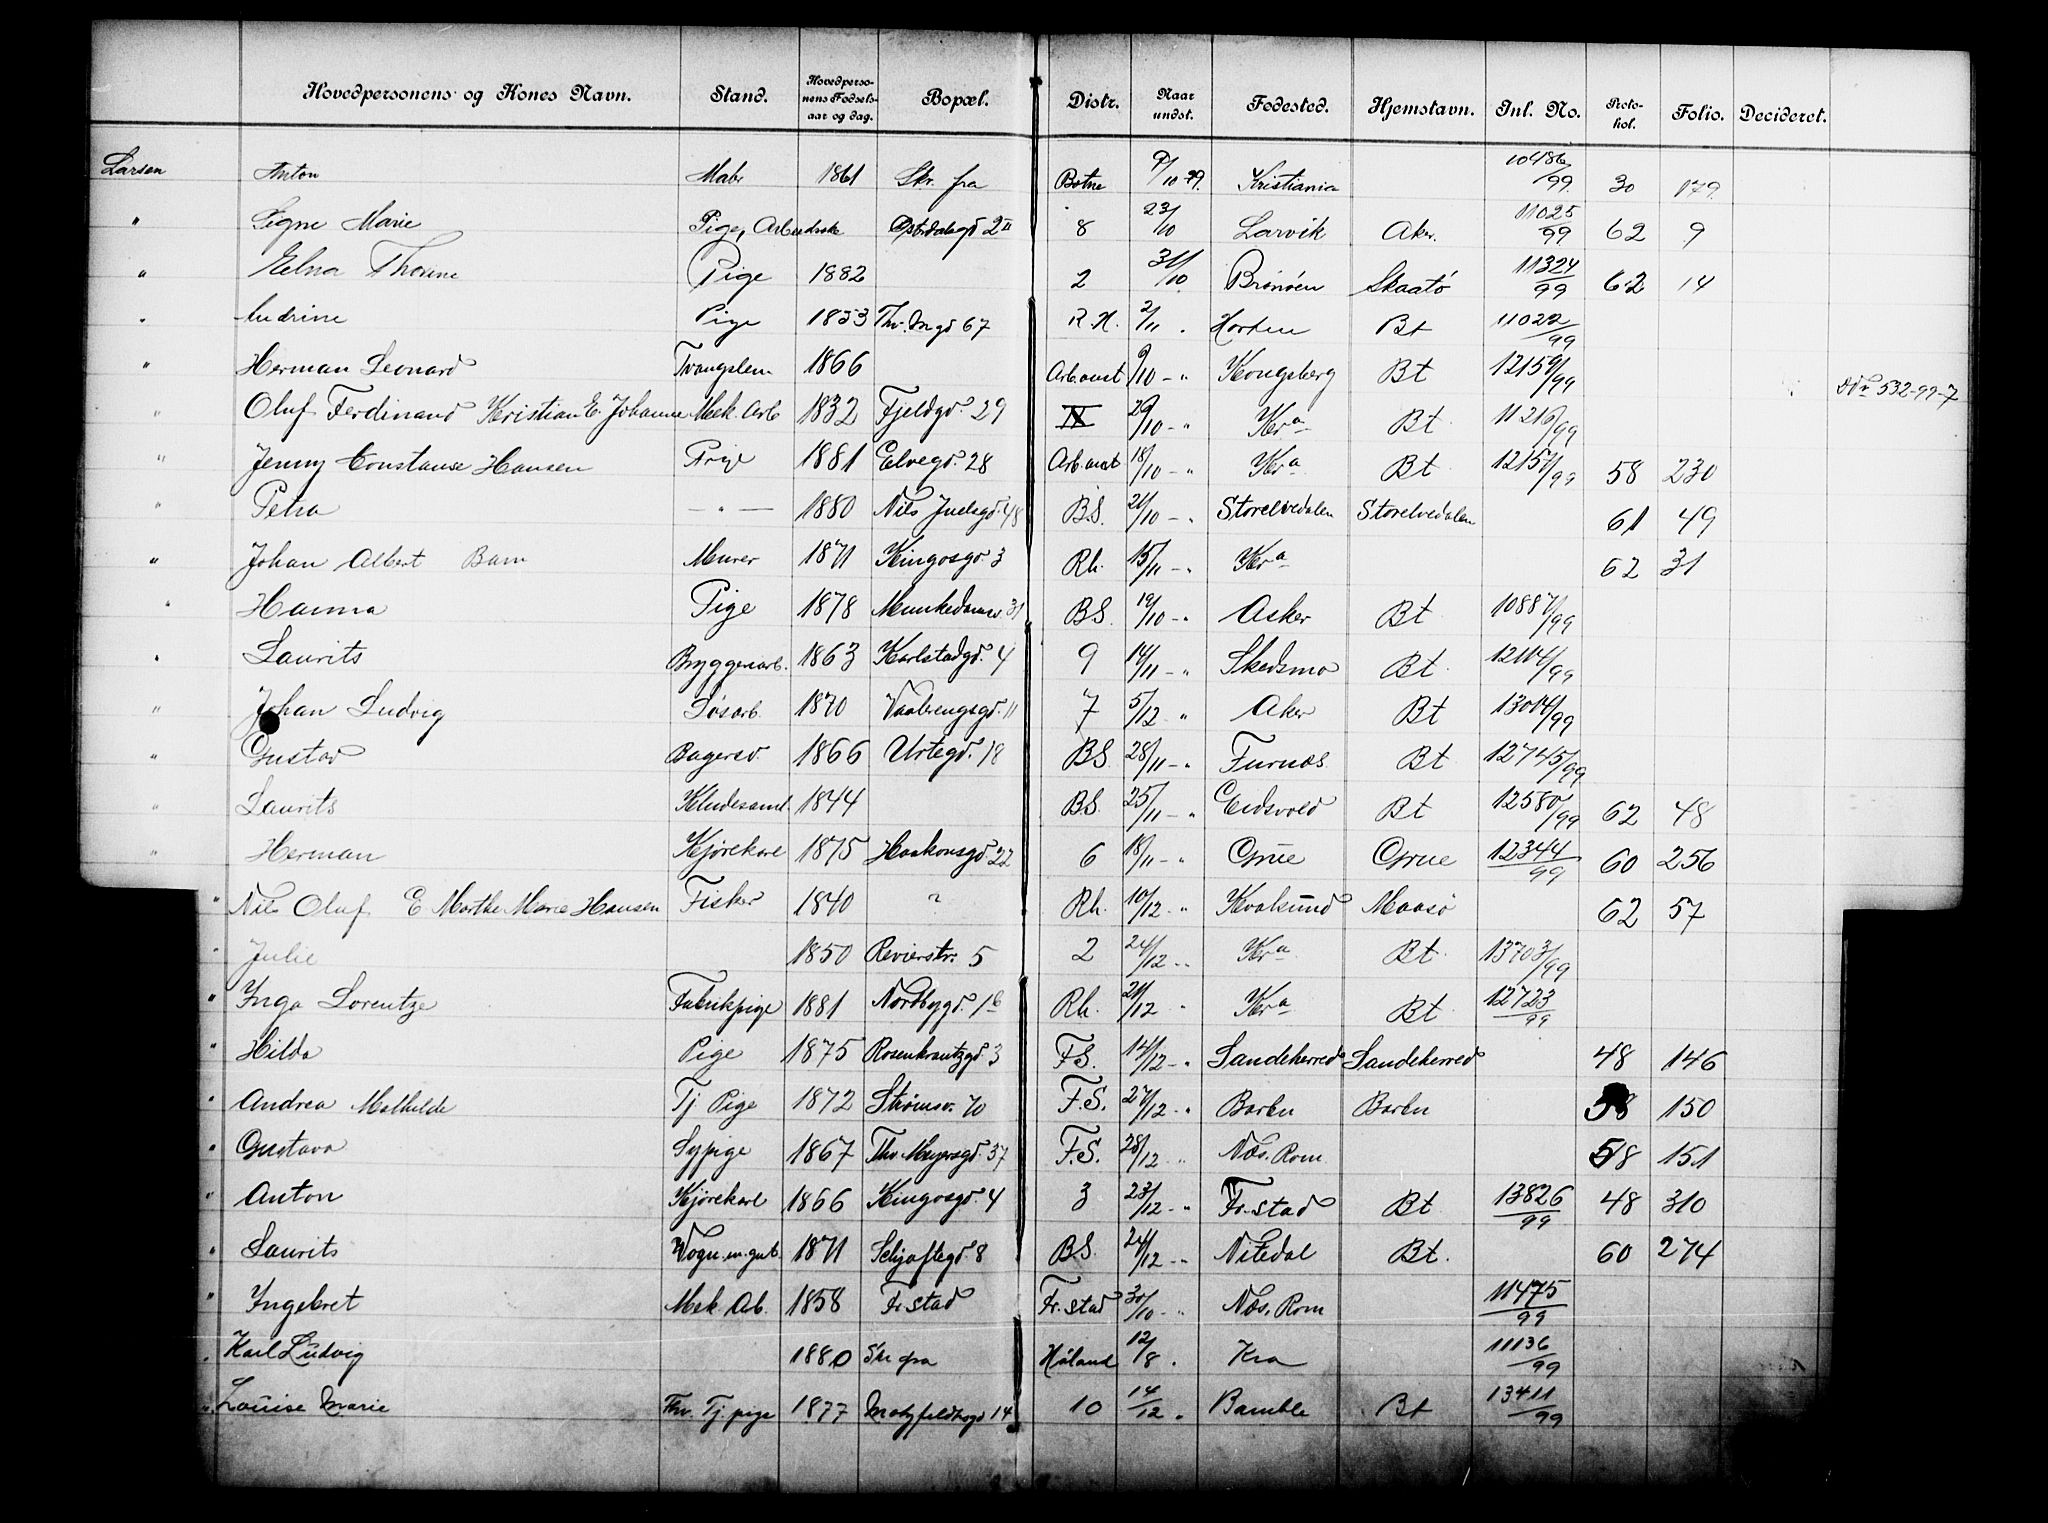 Hovedpersonens og Kones Navn. Stand. Hovedperso-nens Fødsels-aar og dag. Bopæl. Distr. Naar undst. Fødested. Hjemstavn. Inl. No. Proto-kol. Folio. Decideret.
Larsen Anton Matr 1861 Skr. fra Botne 9/10 99. Kristiania 10486/99. 30 179.
" Signe Marie Pige, Østerdalsgd 2 II 8 23/10 Larvik Aker. 11025/99 62 9
" Thorine Pige 1882 2 31/10 Brønøen Skaatø 11324/99 62 14
" Andrine Pige 1853 Thv. Mgd 67 R.H. 2/11 " Horten Bt 11022/99
" Herman Leonard Tvangslem 1866 Arb.anst 9/10 - " Kongsberg Bt 12159/99 532-99-7
" Oluf Ferdinand Kristian E. Johanne Mek Arb 1832 Fjeldgd. 29 IX 29/10 - " Kra Bt 11216/99
" Jenny Constanse Hansen Pige 1881 Elvegd. 28 Arb.anst 18/10 - " Kra Bt 12157/99 58 230
" Petra — " — 1880 Nils Juelsgd. 48 B.S. 21/10 - " Storelvedalen Storelvedalen 61 49
" Johan Albert Barn Murer 1871 Kingosgd. 3 Rh. 15/11 - " Kra 62 31
" Hanna Pige 1878 Munkedamsv. 31 B.S. 19/10 - " Asker Bt 10887/99
" Laurits Bryggeriarb. 1863 Karlstadgd. 4 9 14/11 - " Skedsmo Bt 12114/99
" Johan Ludvig Løsarb. 1870 Vaalerengsgd. 11 7 5/12 " Aker Bt 13014/99
" Gustav Bagersv. 1866 Urtegd. 18 B.S. 28/11 - " Furnæs Bt 12745/99
" Laurits Kludesaml. 1844 B.S. 25/11 - " Eidsvold Bt 12580/99 62 48
" Herman Kjørekarl 1875 Haakonsgd 22 6 18/11 - " Grue Grue 12344/99 60 256
" Nils Oluf E Marthe Marie Hansen Fisker 1840 " Rh. 10/12 - " Kvalsund Maasø 62 57
" Julie 1850 Revierstr. 5 2 24/12 - " Kra Bt 13703/99
" Inga Lorentze Fabrikpige 1881 Nordbygd. 1b Rh. 21/12 " Kra Bt 12723/99
" Hilda Pige 1875 Rosenkrantzgd. 3 F.S. 14/12 - " Sandeherred Sandeherred 48 146
" Andrea Mathilde Tj Pige 1872 Strømsv. 70 F.S. 27/12 - " Barbu Barbu 58 150
" Gustava Sypige 1867 Thv. Meyersgd. 37 F.S. 28/12 " Næs. Rom 58 151
" Anton Kjørekarl 1866 Kingosgd. 4 3 23/12 - " Fr.stad Bt 13826/99 48 310
" Laurits 1871 Schjøftegd. 8 B.S. 24/12 - " Nitedal Bt. 60 274
" Ingebret Mek. Arb. 1858 Fr.stad Fr.stad 30/10 - " Næs. Rom 11475/99
" Karl Ludvig 1880 Skr fra Høland 12/8 " Kra 11136/99
" Louise Marie Thv. Tj pige 1877 14 10 14/12 " Bamble Bt 13411/99